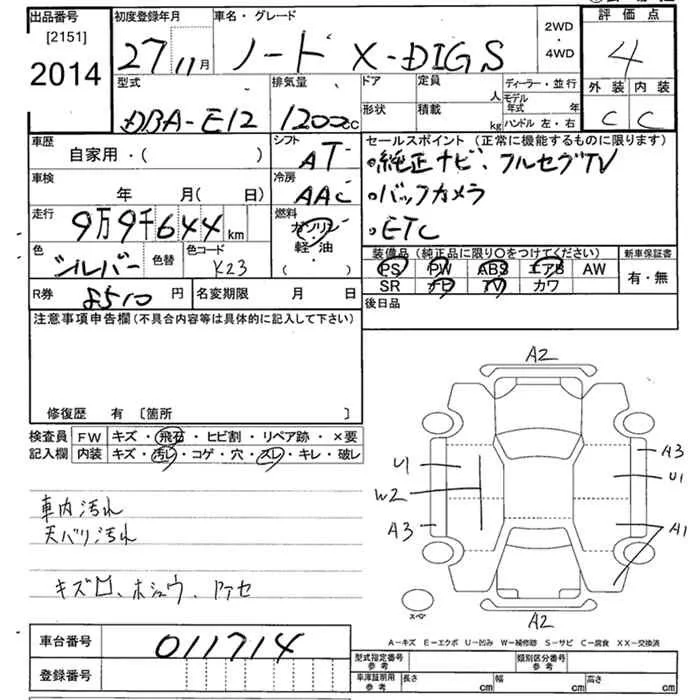 出品番号 初度登録年月 車名・グレード 2WD・4WD 評価点
[2151] 27年11月 ノート X-DIGS 4
2014
型式 排気量 ドア 定員 人 ディーラー・並行 外装 内装
DBA-E12 1200cc 形状 積載 kg モデル年式 年 ハンドル 左・右 C C
車歴 自家用・( ) シフト AT セールスポイント (正常に機能するものに限ります)
・純正ナビ、フルセグTV
車検 年 月( 日) 冷房 AAC ・バックカメラ
走行 9万9千644km 燃料 ガソリン・軽・油 ( ) ・ETC
色 シルバー 色替 色コード K23 装備品 (純正品に限り〇をつけてください) 新車保証書
PS PW ABS エアB AW 有・無
R券 8510円 名変期限 月 日 SR ナビ TV カワ
注意事項申告欄 (不具合内容等は具体的に記入して下さい) 後日品
修復歴 有 [箇所 ]
検査員 FW キズ・飛石・ヒビ割・リペア跡・×要
記入欄 内装 キズ・汚レ・コゲ・穴・スレ・キレ・破レ
車内汚れ
天バリ汚れ
A2
U1
W2
A3
A3
U1
A1
スペア
A2
車台番号 011714
A-キズ E-エクボ U-凹み W-補修跡 S-サビ C-腐食 XX-交換済
登録番号
型式指定番号 参考 類別区分番号 参考
車庫証明用 参考 長さ cm 幅 cm 高さ cm